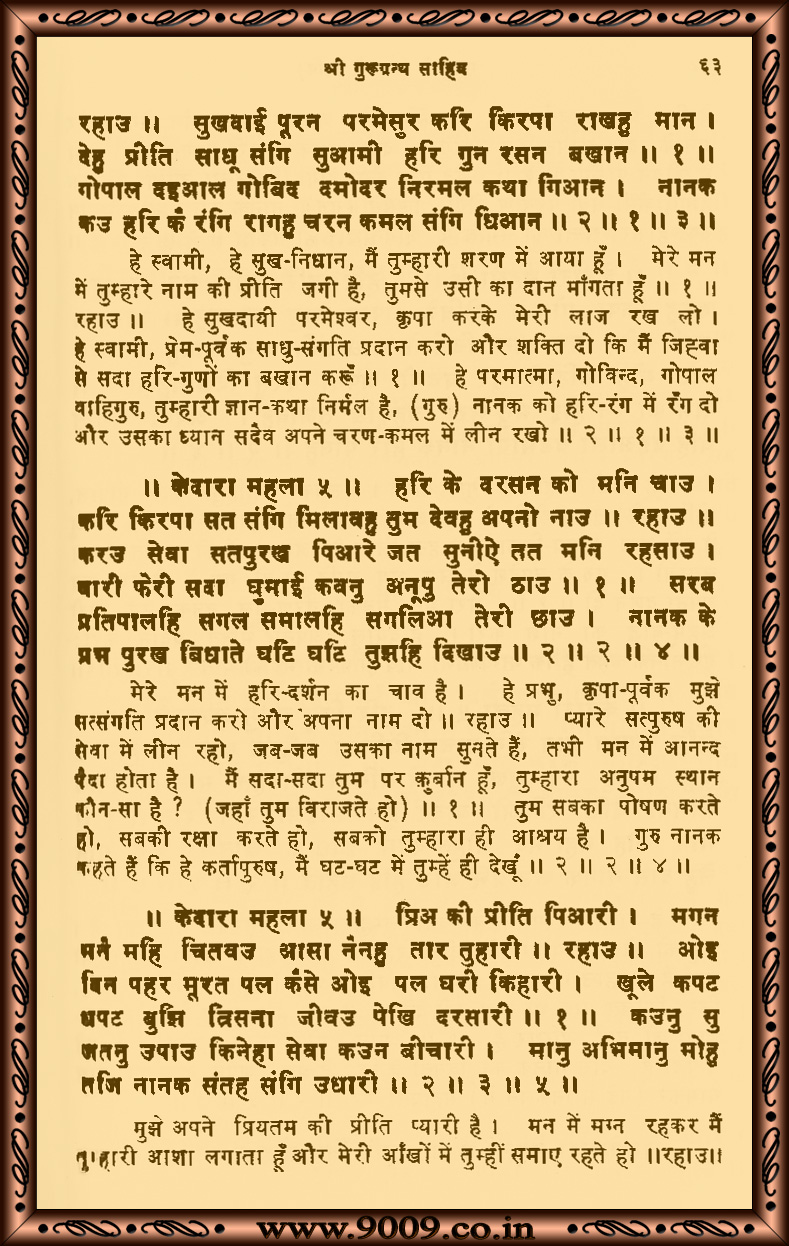 श्री गुरूग्रन्थ साहिब ६३
रहाउ ॥ सुखदाई पूरन परमेसुर करि किरपा राखहु मान ।
देहु प्रीति साधू संगि सुआमी हरि गुन रसन बखान ॥ १ ॥
गोपाल दइआल गोबिद दमोदर निरमल कथा गिआन । नानक
कउ हरि कै रंगि रागहु चरन कमल संगि धिआन ॥ २ ॥ १ ॥ ३ ॥
हे स्वामी, हे सुख-निधान, मैं तुम्हारी शरण में आया हूँ । मेरे मन
में तुम्हारे नाम की प्रीति जगी है, तुमसे उसी का दान माँगता हूँ ॥ १ ॥
रहाउ ॥ हे सुखदायी परमेश्वर, कृपा करके मेरी लाज रख लो ।
हे स्वामी, प्रेम-पूर्वक साधु-संगति प्रदान करो और शक्ति दो कि मैं जिह्वा
से सदा हरि-गुणों का बखान करूँ ॥ १ ॥ हे परमात्मा, गोविन्द, गोपाल
वाहिगुरु, तुम्हारी ज्ञान-कथा निर्मल है, (गुरु) नानक को हरि-रंग में रँग दो
और उसका ध्यान सदैव अपने चरण-कमल में लीन रखो ॥ २ ॥ १ ॥ ३ ॥
॥ केदारा महला ५ ॥ हरि के दरसन को मनि चाउ ।
करि किरपा सत संगि मिलावहु तुम देवहु अपनो नाउ ॥ रहाउ ॥
करउ सेवा सतपुरख पिआरे जत सुनीऐ तत मनि रहसाउ ।
वारी फेरी सदा घुमाई कवनु अनूपु तेरो ठाउ ॥ १ ॥ सरब
प्रतिपालहि सगल समालहि सगलिआ तेरी छाउ । नानक के
प्रभ पुरख बिधाते घटि घटि तुझहि दिखाउ ॥ २ ॥ २ ॥ ४ ॥
मेरे मन में हरि-दर्शन का चाव है । हे प्रभु, कृपा-पूर्वक मुझे
सत्संगति प्रदान करो और अपना नाम दो ॥ रहाउ ॥ प्यारे सत्पुरुष की
सेवा में लीन रहो, जब-जब उसका नाम सुनते हैं, तभी मन में आनन्द
पैदा होता है । मैं सदा-सदा तुम पर क़ुर्बान हूँ, तुम्हारा अनुपम स्थान
कौन-सा है ? (जहाँ तुम विराजते हो) ॥ १ ॥ तुम सबका पोषण करते
हो, सबकी रक्षा करते हो, सबको तुम्हारा ही आश्रय है । गुरु नानक
कहते हैं कि हे कर्तापुरुष, मैं घट-घट में तुम्हें ही देखूँ ॥ २ ॥ २ ॥ ४ ॥
॥ केदारा महला ५ ॥ प्रिअ की प्रीति पिआरी । मगन
मनै महि चितवउ आसा नैनहु तार तुहारी ॥ रहाउ ॥ ओइ
दिन पहर मूरत पल कैसे ओइ पल घरी किहारी । खूले कपट
धपट बुझि त्रिसना जीवउ पेखि दरसारी ॥ १ ॥ कउनु सु
जतनु उपाउ किनेहा सेवा कउन बीचारी । मानु अभिमानु मोहु
तजि नानक संतह संगि उधारी ॥ २ ॥ ३ ॥ ५ ॥
मुझे अपने प्रियतम की प्रीति प्यारी है । मन में मग्न रहकर मैं
तुम्हारी आशा लगाता हूँ और मेरी आँखों में तुम्हीं समाए रहते हो ॥रहाउ॥
www.9009.co.in